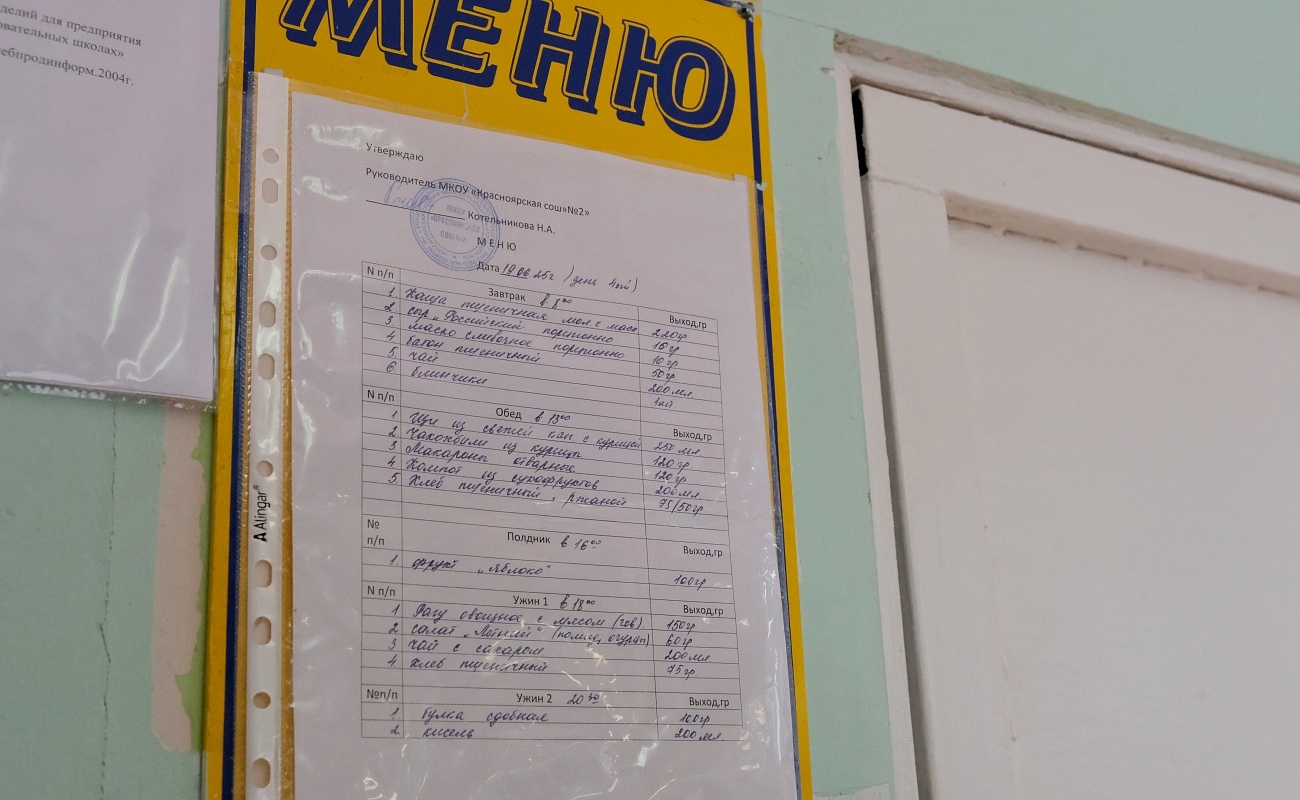 делий для предприятия
овательных школах»
ебпродинформ.2004г.
МЕНЮ
Утверждаю
Руководитель МКОУ «Красноярская сош»№2»
Котельникова Н.А.
М Е Н Ю
Дата 19.06.25г (день 4ый)
N п/п Завтрак в 8⁰⁰ Выход,гр
1. Каша пшеничная мол с масл 220гр
2. сыр „Российский порционно 10гр
3 масло сливочное порционно 10гр
4. батон пшеничный 50гр
5. чай 200мл
6. блинчики 1шт.
N п/п Обед в 13⁰⁰ Выход,гр
1 Щи из свежей кап с курицей 250 мл
2 Чахохбили из курицы 120гр
3 Макароны отварные 120гр
4 Компот из сухофруктов 200мл
5 Хлеб пшеничный, ржаной 75/50гр
№ п/п Полдник в 16⁰⁰ Выход,гр
1. фрукт „Яблоко" 100гр
N п/п Ужин 1 в 18⁰⁰ Выход,гр
1 Рагу овощное с мясом (гов) 150гр
2 салат „Летний" (помид, огурцы) 60гр
3 чай с сахаром 200мл
4 хлеб пшеничный 75гр
№п/п Ужин 2 20³⁰ Выход,гр
1. булка сдобная 100гр
2. кисель 200мл.
Alingar®